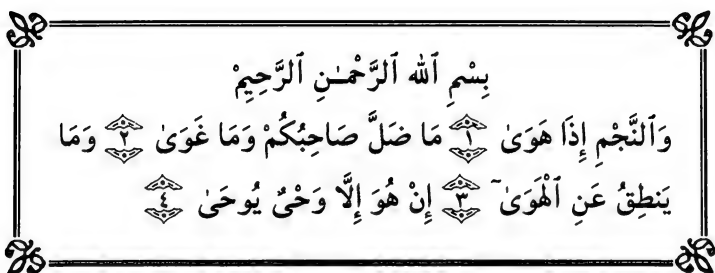 بِسْمِ ٱللهِ ٱلرَّحْمَـٰنِ ٱلرَّحِيمْ
وَٱلنَّجْمِ إِذَا هَوَىٰ ١ مَا ضَلَّ صَاحِبُكُمْ وَمَا غَوَىٰ ٢ وَمَا
يَنطِقُ عَنِ ٱلْهَوَىٰٓ ٣ إِنْ هُوَ إِلَّا وَحْىٌ يُوحَىٰ ٤